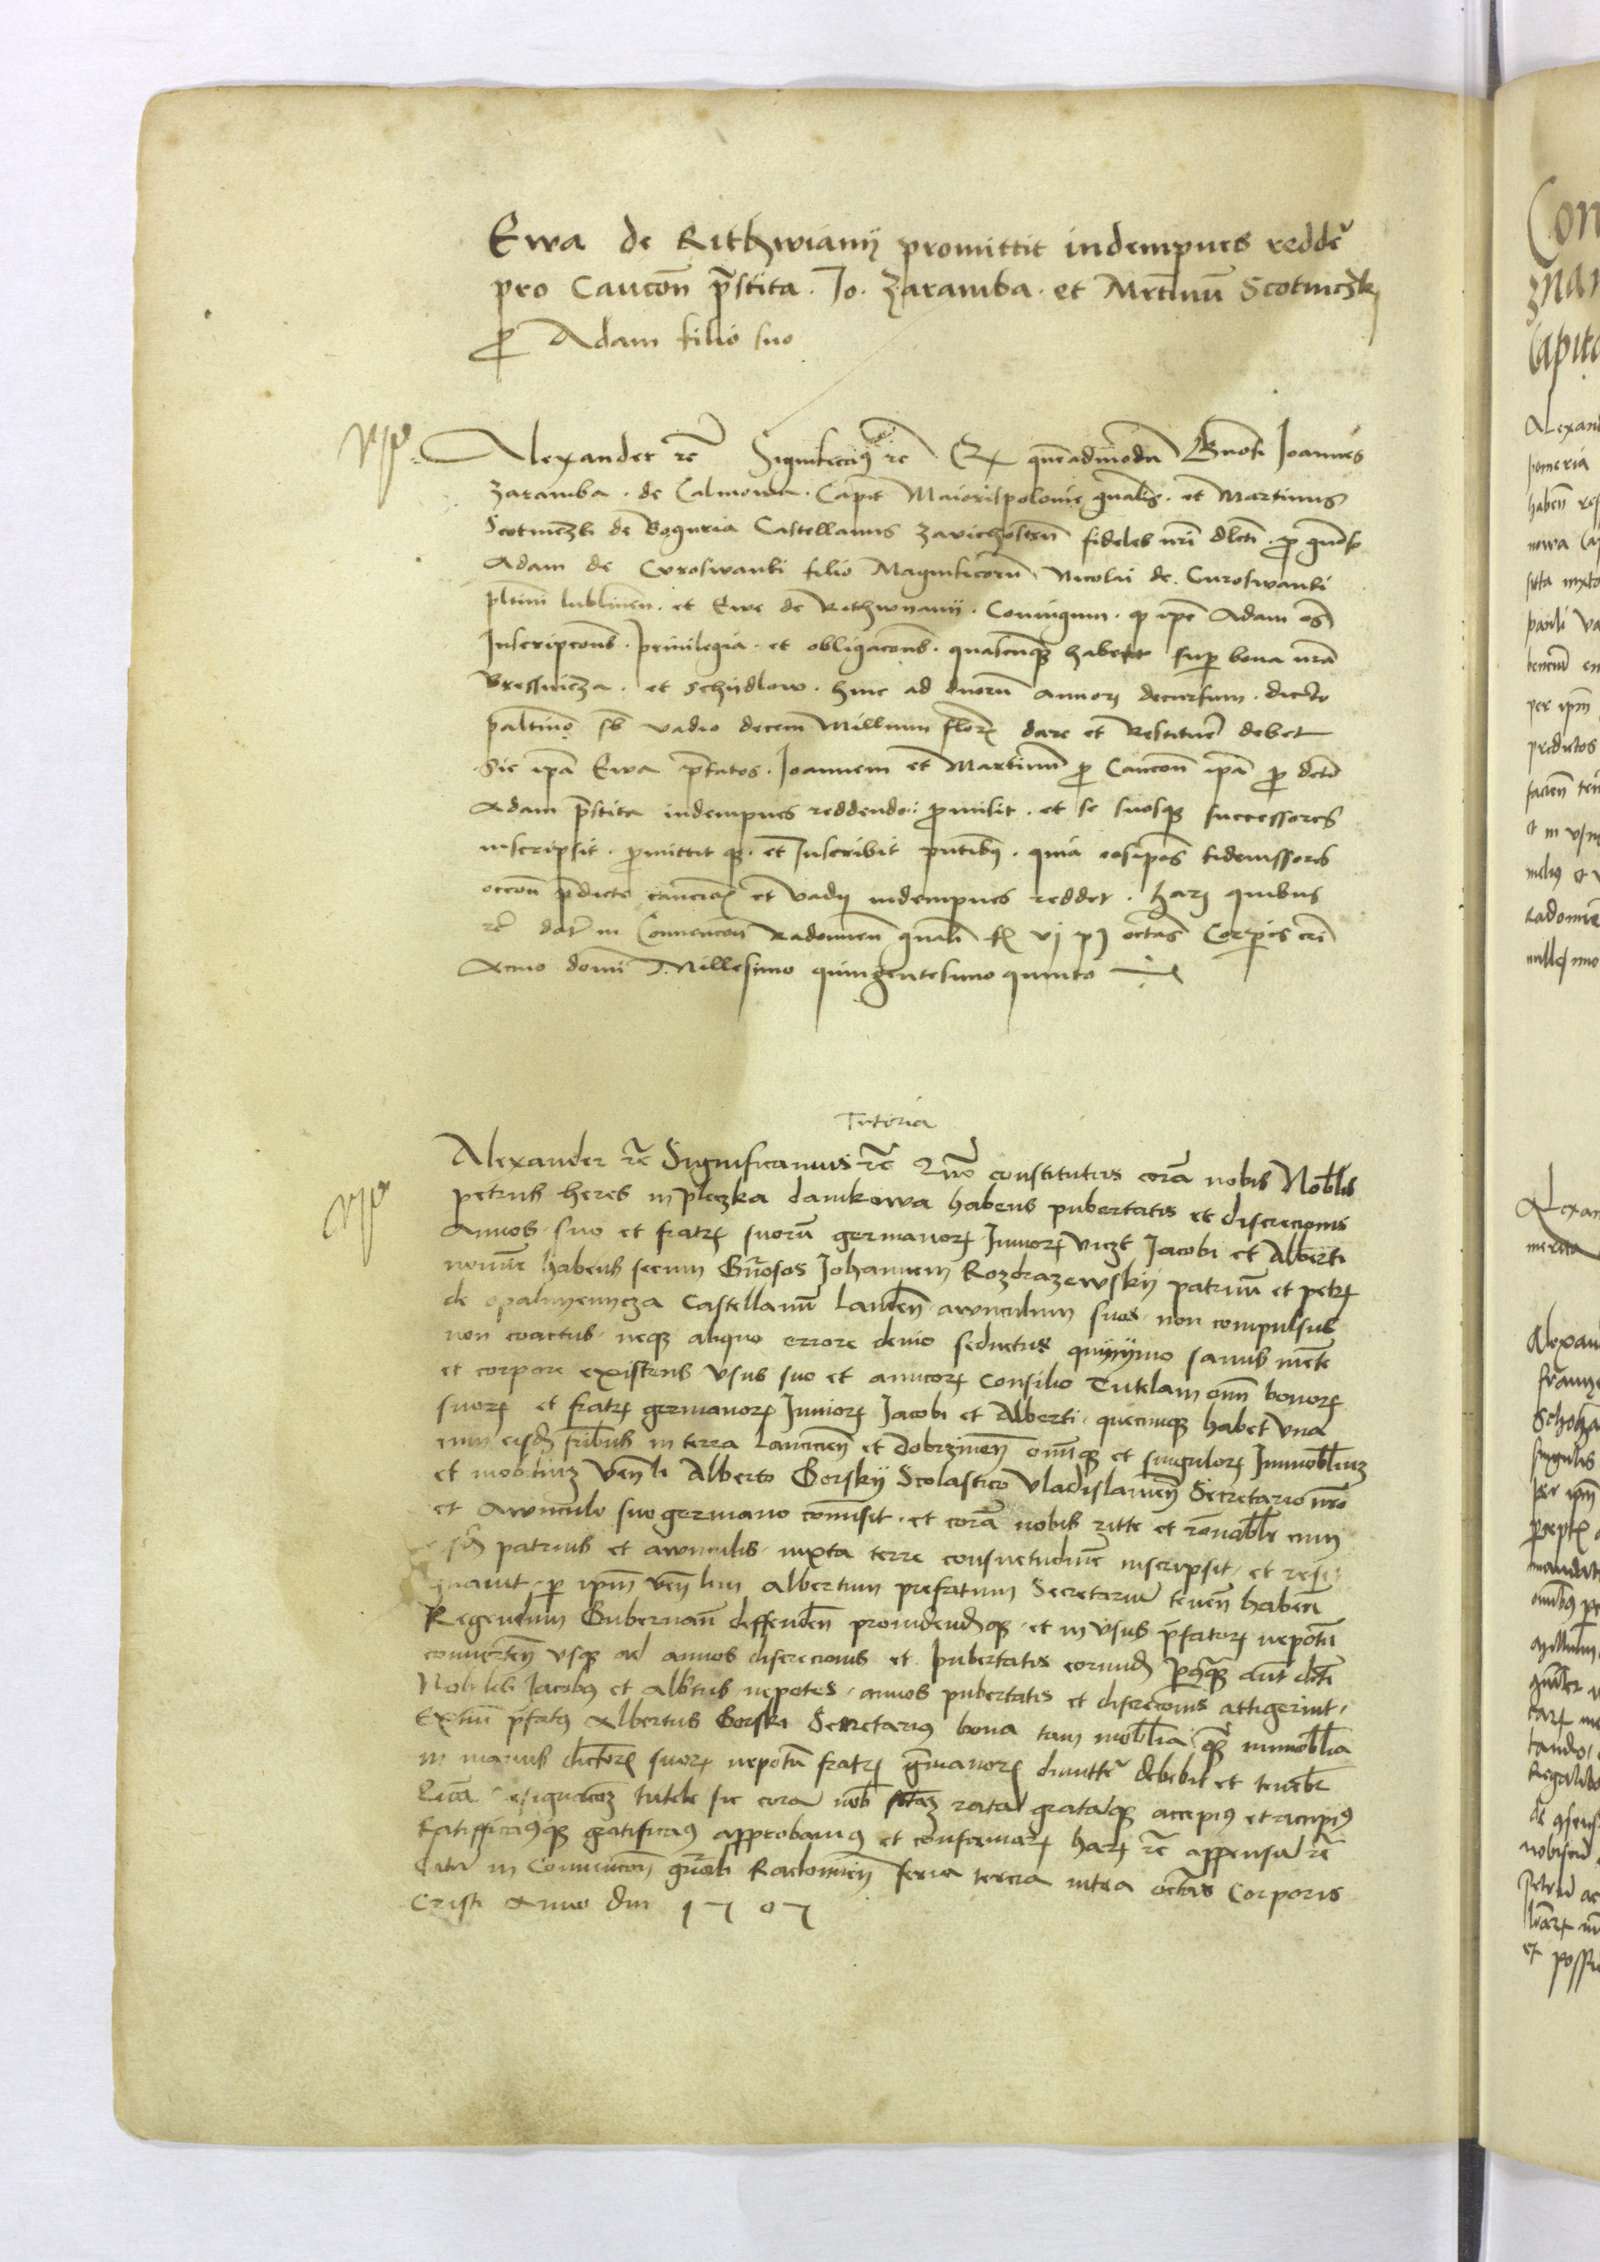 Ewa de Rithwianij promittit indempnes redde
pro Caucon prestita Jo. Zaramba et Mrtinum Scotniczkj
pro Adam filio suo
Alexander re Significamus re Quia quemadmodum Gnosi Joannes
Zaramba de Calinowa Capit Maiorispolonie gnalis et Martinus
Scotniczki de Boguria Castellanus Zavichosten fideles nri dlcti pro gnoso
Adam de Curoswanki filio Magnificorum Nicolai de Curoswanki
pltini lublinen et Ewe de Rithwyanij Coniugum q ipe Adam oes
Inscripcones Privilegia et obligacones quascunq haberet super bona nra
Bressnicza et Schijdlow hinc ad duorum annorum decursum dicto
paltino sb vadio decem Millium floren dare et Restituere debet
Sic ipa Ewa prefatos Joannem et Martinum pro Caucon ipa pro dcto
Adam prestita indempnes reddendo promisit et se suosq successores
inscripsit promittit q et Inscribit pntibus quia eosipos fideiussores
occon predicte caucion et vadij indempnes reddet Harum quibus
re dat in Convencon Radomien gnali f vj p octavas Corporis cri
Anno domi Millesimo quingentesimo quinto
Tutoria
Alexander re Significamus re Quo constitutus coram nobis Nobilis
petrus heres in pleczka danikowa habens pubertatis et discrecionis
Annos suo et fratrum suorum germanorum Juniorum viczt Jacobi et Alberti
nomine habens secum Gnosos Johannem Rozdrazewskij patruum et petrum
de opalnyenycza Castellanum Landen awnculum suos non compulsus
non coactus neq aliquo errore devio seductus quijnymo sanus mente
et corpore existens usus suo et amicorum Consilio Tutelam omn bonorum
suorum et fratrum germanorum Juniorum Jacobi et Alberti quecunq habet una
cum eisdem fribus in terra Lancicien et dobrzinen omniq et singulorum Immobilium
et mobilium Venli Alberto Gorskij Scolastico Vladislavien Secretario nro
et Awnculo suo germano comisit et coram nobis ritte et ronabile cum
patruis et awnculis iuxta terre consuetudinem inscripsit et resi
gnavit p ipm venlem Albertum prefatum Secretarium tenen haben
Regendum Gubernan deffenden providendq et in usus prefatorum nepotum
converten usq ad annos discrecionis et pubertatis eorund postq dum dicte
Nobiles Jacobus et Albrtus nepotes annos pubertatis et discrecionis attigerint
Extunc prefatus Albertus Gorski Secretarius bona tam mobilia quam immobilia
in manus dictorum suorum nepotum fratrum germanorum dimittere debebit et tenebit
Quam resignacionem tutele sic coram nob factam ratam gratamq accepimus et accipimus
Ratifficamusq gratificamus approbamus et confirmamus harum re appensum re
Datum in Convencon gnali Radomien feria tercia infra octavas Corporis
Cristi Anno dni 1505